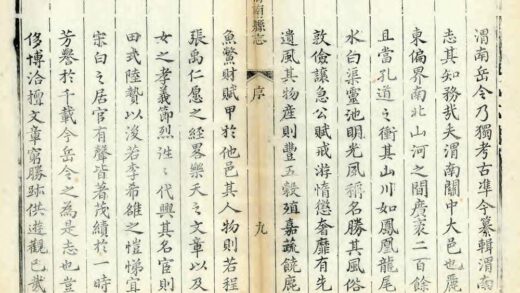 渭南岳令乃獨考古準今纂輯渭南
志其知務哉夫渭南關中大邑也麗
東偏界南北山河之間廣袤二百餘
且當孔道之衝其山川如鳳凰龍尾
水白渠靈池明光夙稱名勝其風俗
敦儉讓急公賦戒游惰懲奢靡有先
遺風其物產則豐五穀殖嘉蔬饒麀
南縣志
序
九
魚鱉財賦甲於他邑其人物則若程
張禹仁愿之經畧樂天之文章以及
女之孝義節烈徃〻代興其名宦則
田武陸贄以後若李希雄之愷悌宜
宋白之居官有聲皆著茂績於一時
芳譽於千載今岳令之為是志也豈
侈博洽擅文章窮勝跡供遊觀已哉